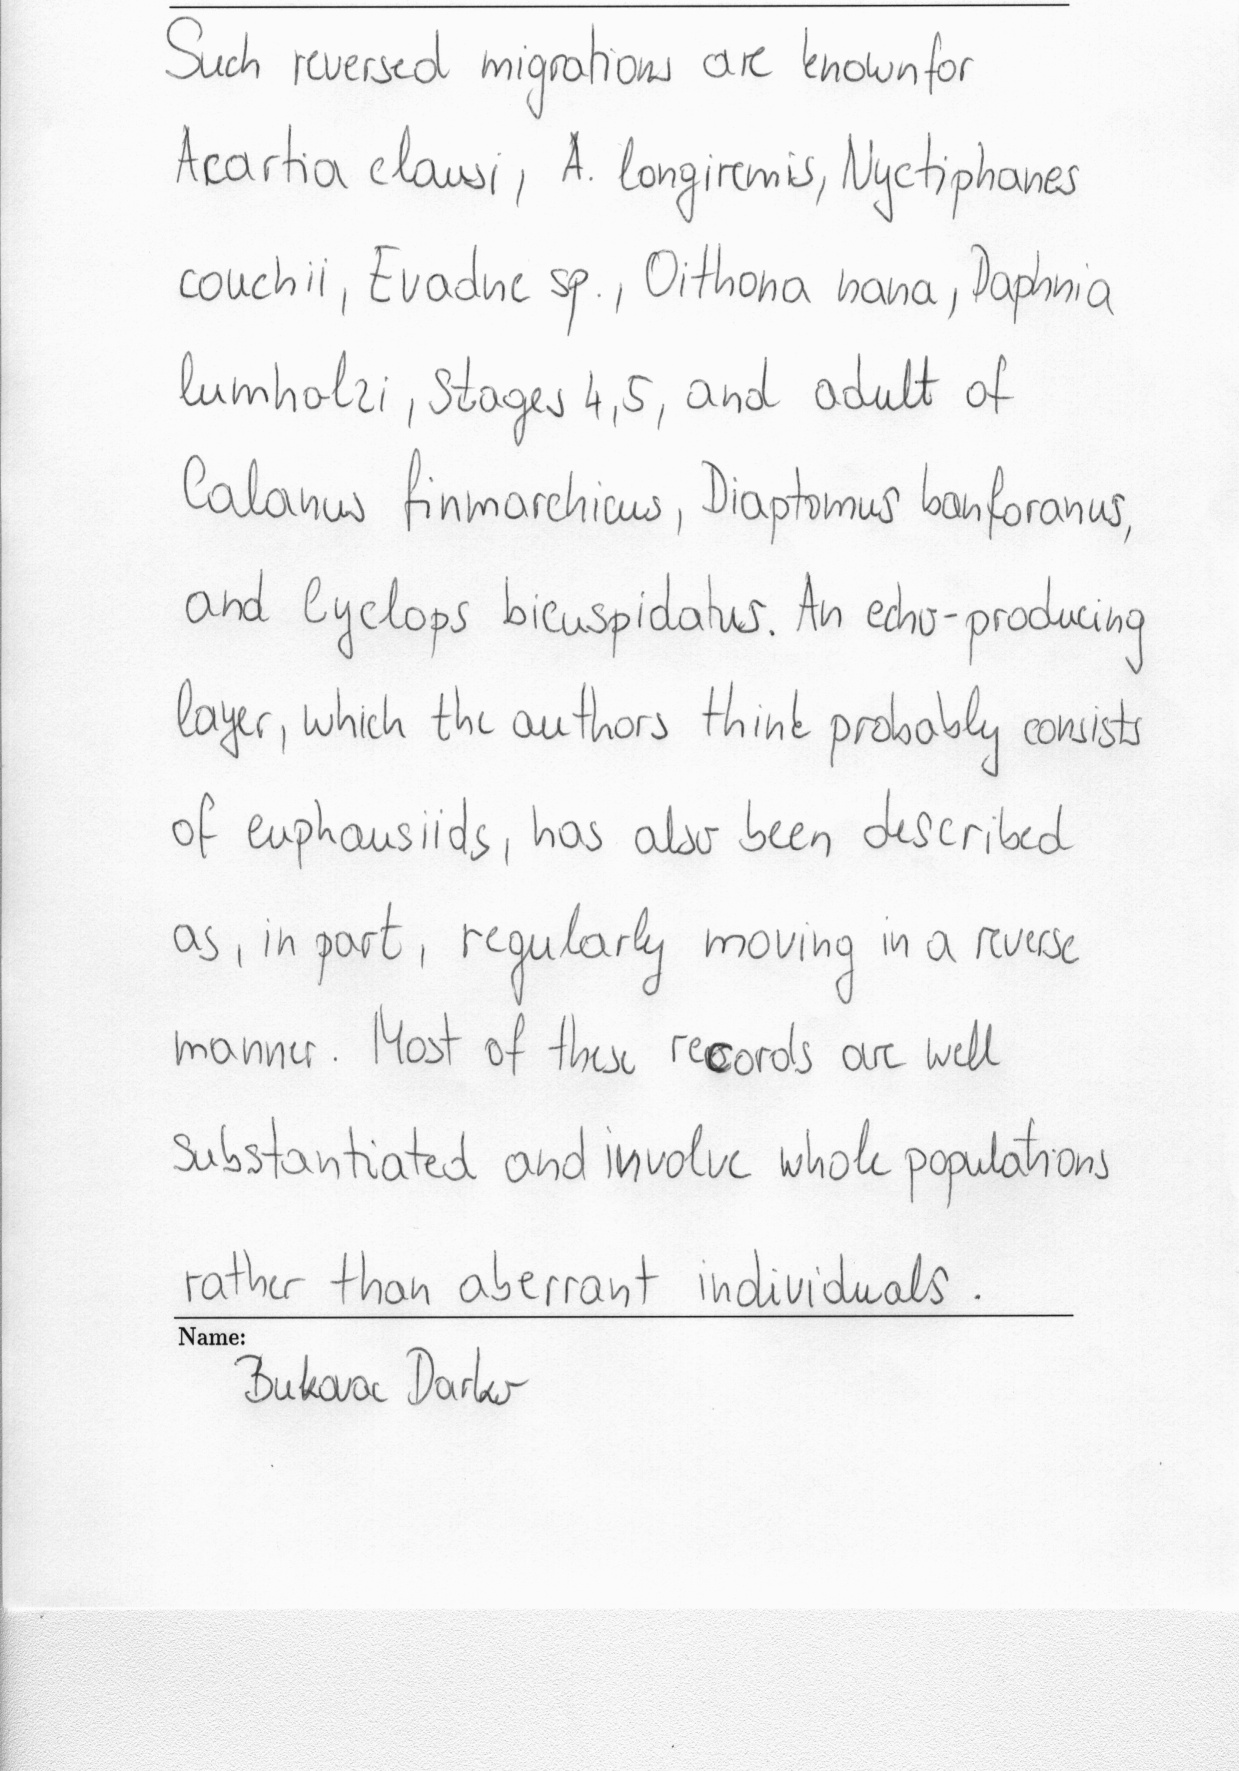 Such reversed migrations are known for
Acartia clausi, A. longiremis, Nyctiphanes
couchii, Evadne sp., Oithona nana, Daphnia
lumholzi, Stages 4,5, and adult of
Calanus finmarchicus, Diaptomus banforanus,
and Cyclops bicuspidatus. An echo-producing
layer, which the authors think probably consists
of euphausiids, has also been described
as, in part, regularly moving in a reverse
manner. Most of these records are well
substantiated and involve whole populations
rather than aberrant individuals.
Name:
Bukovac Darko